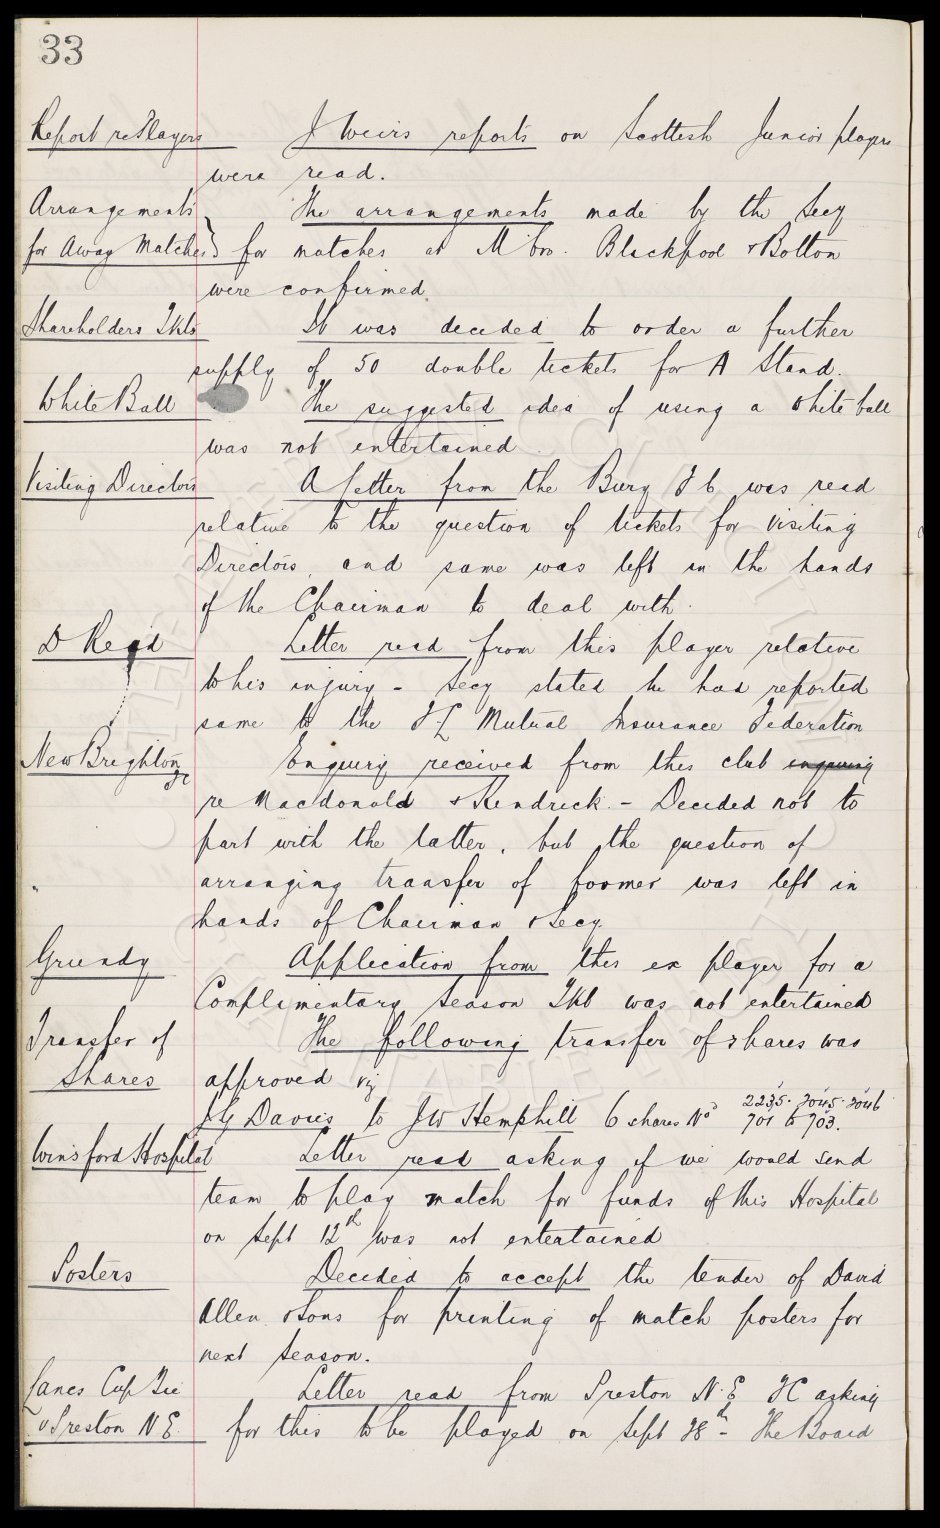 33
Report re Players
J Weirs reports on Scottish Junior players
were read.
Arrangements
for Away Matches}
The arrangements made by the Secy
for matches at M'bro. Blackpool & Bolton
were confirmed.
Shareholders Tkts
It was decided to order a further
supply of 50 double tickets for A Stand.
White Ball
The suggested idea of using a white ball
was not entertained.
Visiting Directors
A letter from the Bury F C was read
relative to the question of tickets for visiting
Directors, and same was left in the hands
of the Chairman to deal with.
D Reid
Letter read from this player relative
to his injury - Secy stated he had reported
same to the F.L Mutual Insurance Federation
New Brighton
FC
Enquiry received from this club enquiring
re Macdonald & Kendrick. - Decided not to
part with the latter, but the question of
arranging transfer of former was left in
hands of Chairman & Secy.
Grundy
Application from this ex player for a
Complimentary Season Tkt was not entertained
Transfer of
Shares
The following transfer of shares was
approved viz
J G Davies to J W Hemphill 6 shares Nos 2235. 3045. 3046
701 to 703.
Winsford Hospital
Letter read asking if we would send
team to play match for funds of this Hospital
on Sept 12th was not entertained
Posters
Decided to accept the tender of David
Allen & Sons for printing of match posters for
next season.
Lancs Cup Tie
v Preston N E.
Letter read from Preston N. E FC asking
for this to be played on Sept 28th - The Board